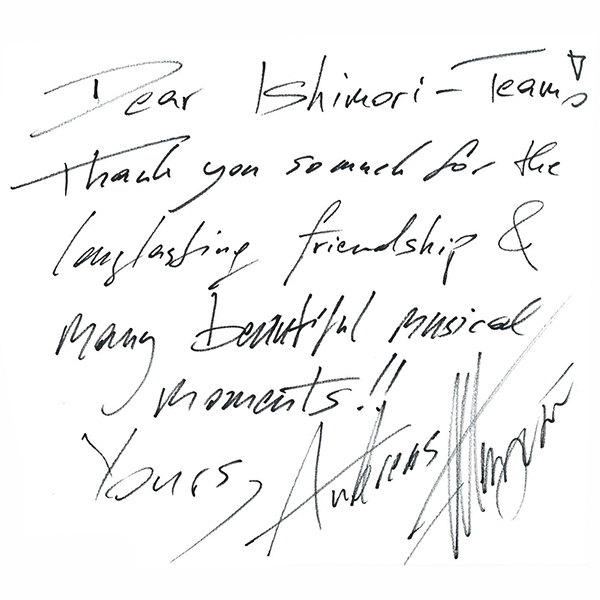 Dear Ishimori-Team!
Thank you so much for the
longlasting friendship &
many beautiful musical
moments!!
Yours, Andreas